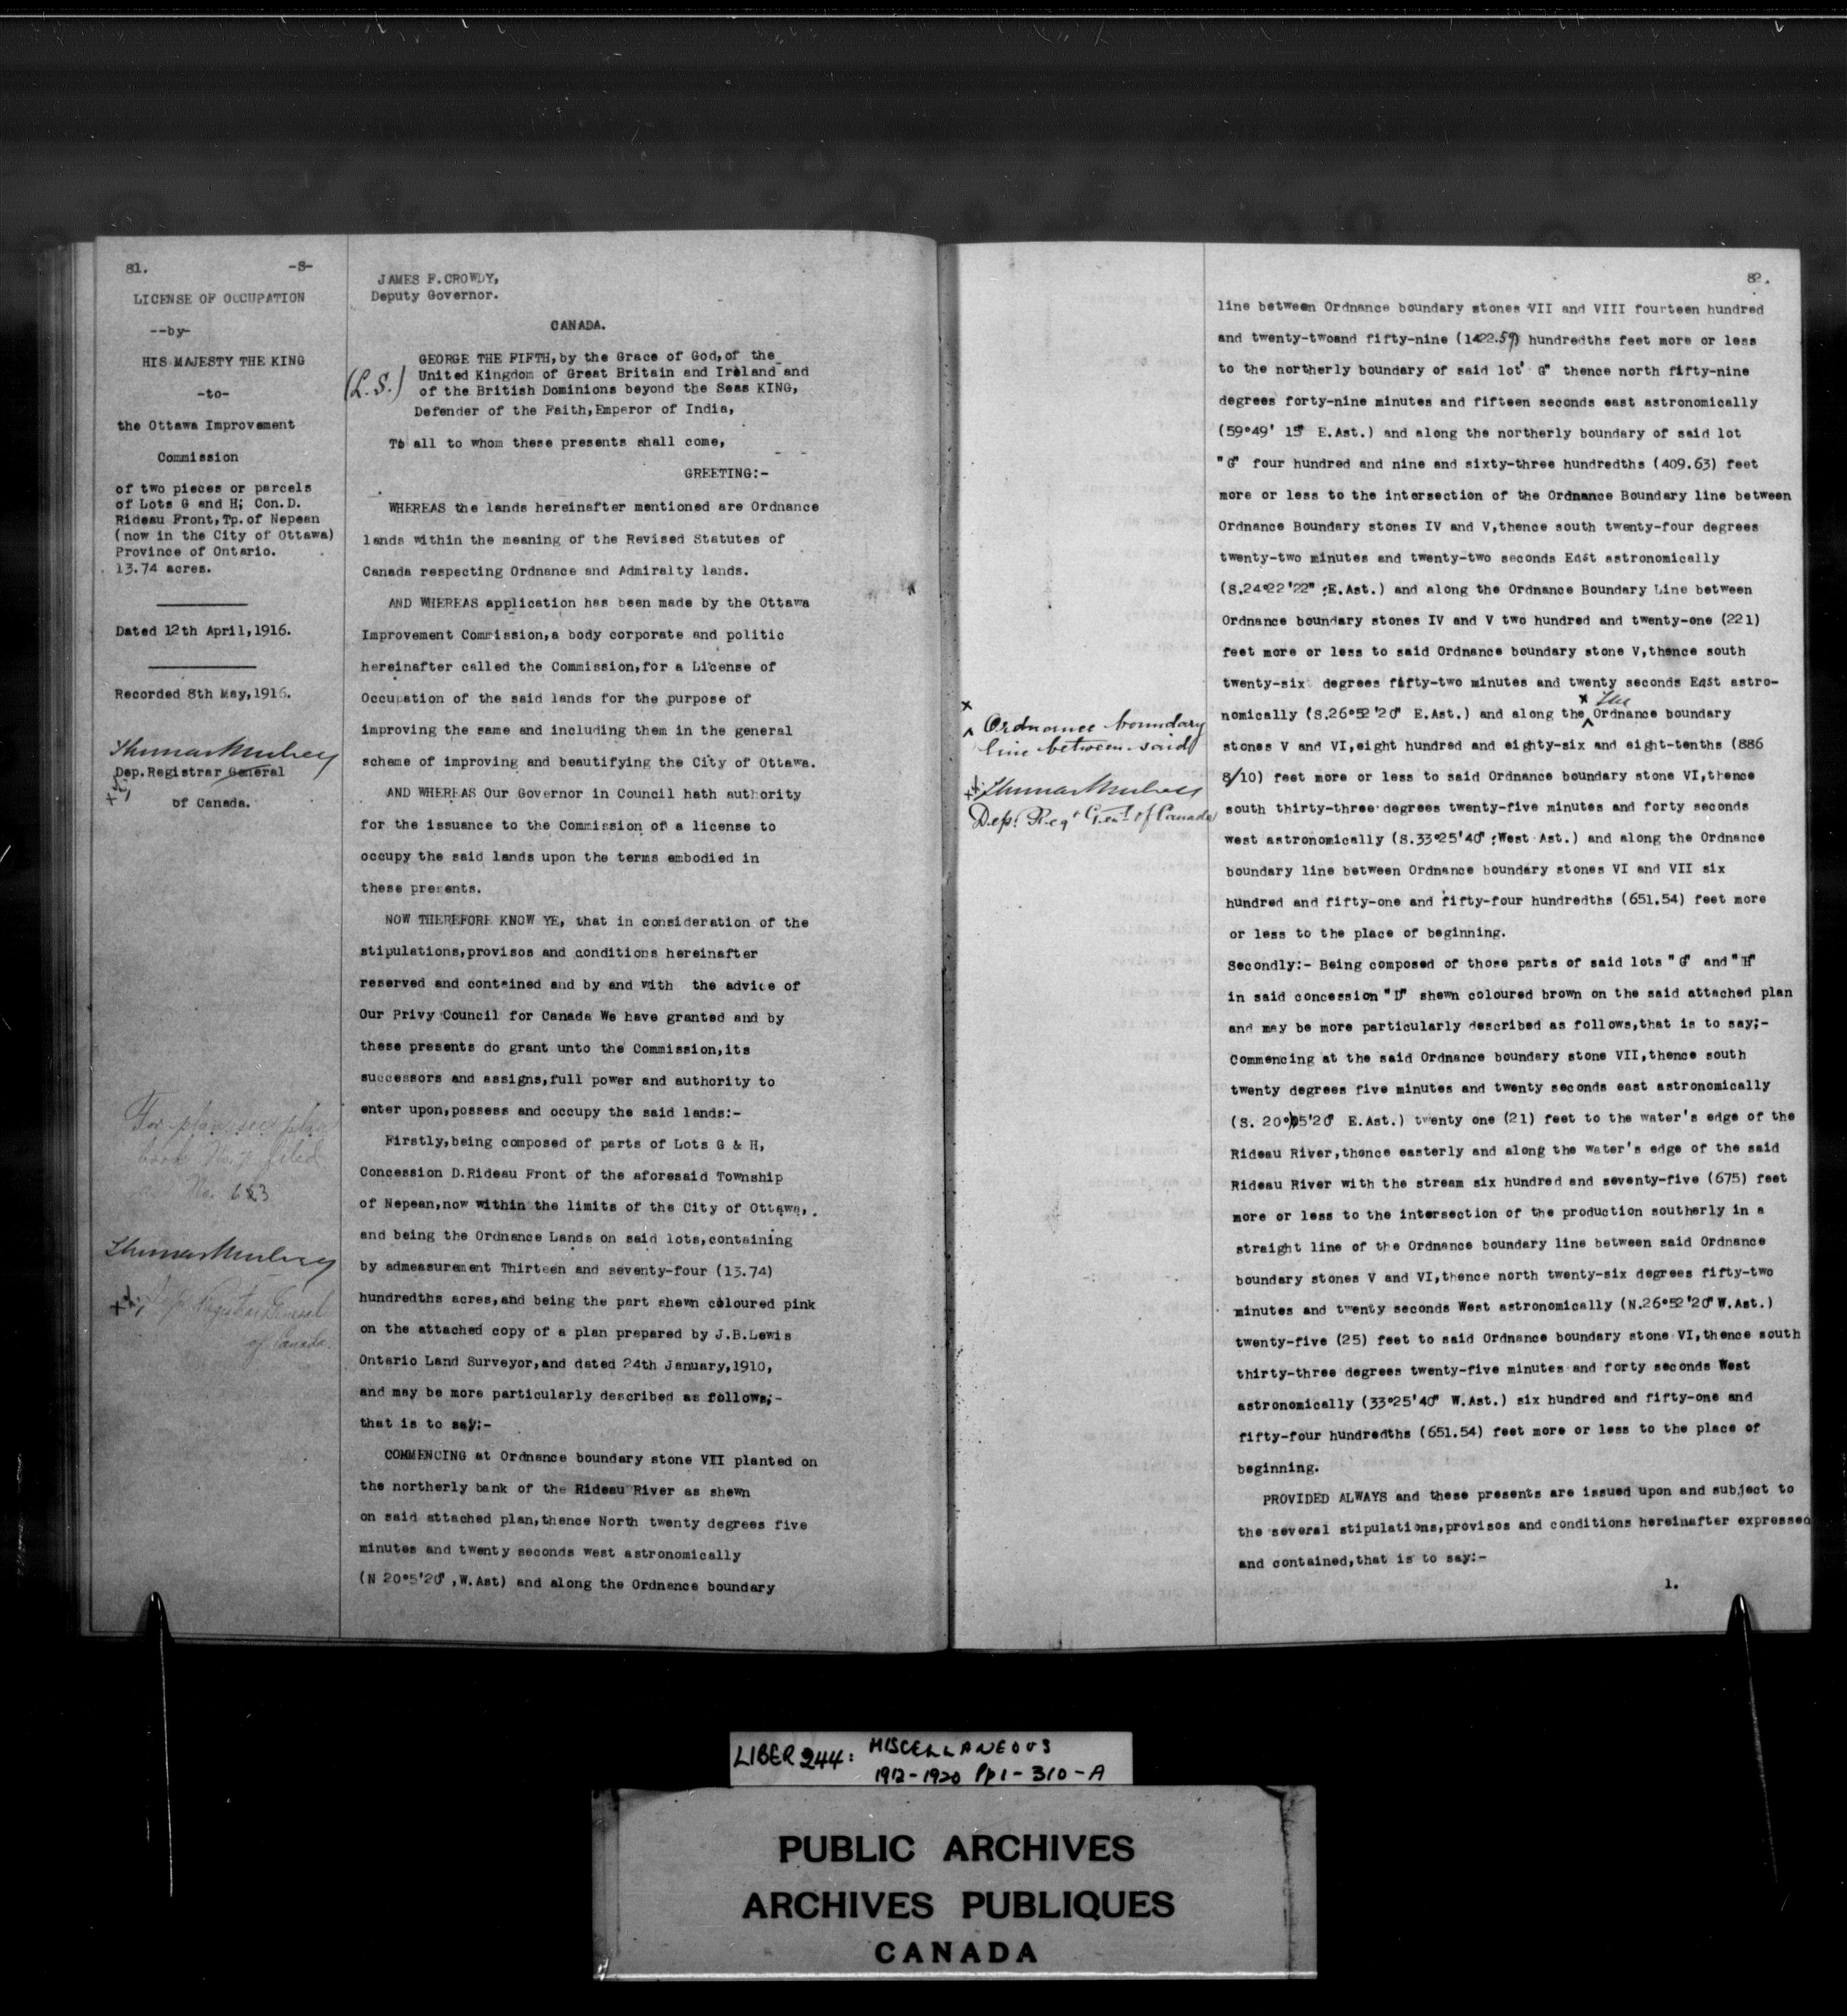 81. -S-
LICENSE OF OCCUPATION
--by-
HIS MAJESTY THE KING
-to-
the Ottawa Improvement
Commission
of two pieces or parcels
of Lots G and H; Con.D.
Rideau Front,Tp.of Nepean
(now in the City of Ottawa)
Province of Ontario.
13.74 acres.
Dated 12th April,1916.
Recorded 8th May,1916.
Thomas Mulvey
Dep.Registrar General
of Canada.
For plan see plan
book No.7 filed
No. 653
Thomas Mulvey
Dep Registrar General
of Canada.
JAMES F.CROWDY,
Deputy Governor.
CANADA.
(L.S.)
GEORGE THE FIFTH,by the Grace of God,of the
United Kingdom of Great Britain and Ireland and
of the British Dominions beyond the Seas KING,
Defender of the Faith,Emperor of India,
To all to whom these presents shall come,
GREETING:-
WHEREAS the lands hereinafter mentioned are Ordnance
lands within the meaning of the Revised Statutes of
Canada respecting Ordnance and Admiralty lands.
AND WHEREAS application has been made by the Ottawa
Improvement Commission,a body corporate and politic
hereinafter called the Commission,for a License of
Occupation of the said lands for the purpose of
improving the same and including them in the general
scheme of improving and beautifying the City of Ottawa.
AND WHEREAS Our Governor in Council hath authority
for the issuance to the Commission of a license to
occupy the said lands upon the terms embodied in
these presents.
NOW THEREFORE KNOW YE, that in consideration of the
stipulations,provisos and conditions hereinafter
reserved and contained and by and with the advice of
Our Privy Council for Canada We have granted and by
these presents do grant unto the Commission,its
successors and assigns,full power and authority to
enter upon,possess and occupy the said lands:-
Firstly,being composed of parts of Lots G & H,
Concession D.Rideau Front of the aforesaid Township
of Nepean,now within the limits of the City of Ottawa,
and being the Ordnance Lands on said lots,containing
by admeasurement Thirteen and seventy-four (13.74)
hundredths acres,and being the part shewn coloured pink
on the attached copy of a plan prepared by J.B.Lewis
Ontario Land Surveyor,and dated 24th January,1910,
and may be more particularly described as follows;-
that is to say:-
COMMENCING at Ordnance boundary stone VII planted on
the northerly bank of the Rideau River as shewn
on said attached plan,thence North twenty degrees five
minutes and twenty seconds west astronomically
(N 20°5'20" ,W.Ast) and along the Ordnance boundary
82.
line between Ordnance boundary stones VII and VIII fourteen hundred
and twenty-twoand fifty-nine (1422.59) hundredths feet more or less
to the northerly boundary of said lot" G" thence north fifty-nine
degrees forty-nine minutes and fifteen seconds east astronomically
(59°49' 15" E.Ast.) and along the northerly boundary of said lot
"G" four hundred and nine and sixty-three hundredths (409.63) feet
more or less to the intersection of the Ordnance Boundary line between
Ordnance Boundary stones IV and V,thence south twenty-four degrees
twenty-two minutes and twenty-two seconds East astronomically
(S.24°22'22" :E.Ast.) and along the Ordnance Boundary Line between
Ordnance boundary stones IV and V two hundred and twenty-one (221)
feet more or less to said Ordnance boundary stone V,thence south
twenty-six degrees fifty-two minutes and twenty seconds East astro-
x the
nomically (S.26°52'20" E.Ast.) and along the ^ Ordnance boundary
x
^ Ordnance boundary
line between said
stones V and VI,eight hundred and eighty-six and eight-tenths (886
8/10) feet more or less to said Ordnance boundary stone VI,thence
Thomas Mulvey
Dep. Regr Genl of Canada
south thirty-three degrees twenty-five minutes and forty seconds
west astronomically (S.33°25'40" :West Ast.) and along the Ordnance
boundary line between Ordnance boundary stones VI and VII six
hundred and fifty-one and fifty-four hundredths (651.54) feet more
or less to the place of beginning.
Secondly:- Being composed of those parts of said lots "G" and "H"
in said concession "D" shewn coloured brown on the said attached plan
and may be more particularly described as follows,that is to say;-
Commencing at the said Ordnance boundary stone VII,thence south
twenty degrees five minutes and twenty seconds east astronomically
(S. 20°05'20" E.Ast.) twenty one (21) feet to the water's edge of the
Rideau River,thence easterly and along the water's edge of the said
Rideau River with the stream six hundred and seventy-five (675) feet
more or less to the intersection of the production southerly in a
straight line of the Ordnance boundary line between said Ordnance
boundary stones V and VI,thence north twenty-six degrees fifty-two
minutes and twenty seconds West astronomically (N.26°52'20" W.Ast.)
twenty-five (25) feet to said Ordnance boundary stone VI,thence south
thirty-three degrees twenty-five minutes and forty seconds West
astronomically (33°25'40" W.Ast.) six hundred and fifty-one and
fifty-four hundredths (651.54) feet more or less to the place of
beginning.
PROVIDED ALWAYS and these presents are issued upon and subject to
the several stipulations,provisos and conditions hereinafter expressed
and contained,that is to say:-
1.
LIBER 244: MISCELLANEOUS
1912-1920 Pp1-310-A
PUBLIC ARCHIVES
ARCHIVES PUBLIQUES
CANADA